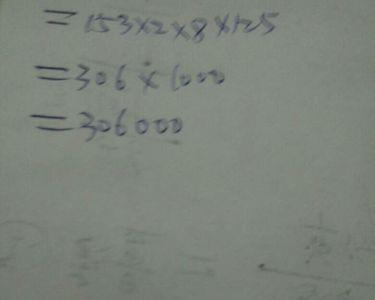 =153×2×8×125
=306×1000
=306000